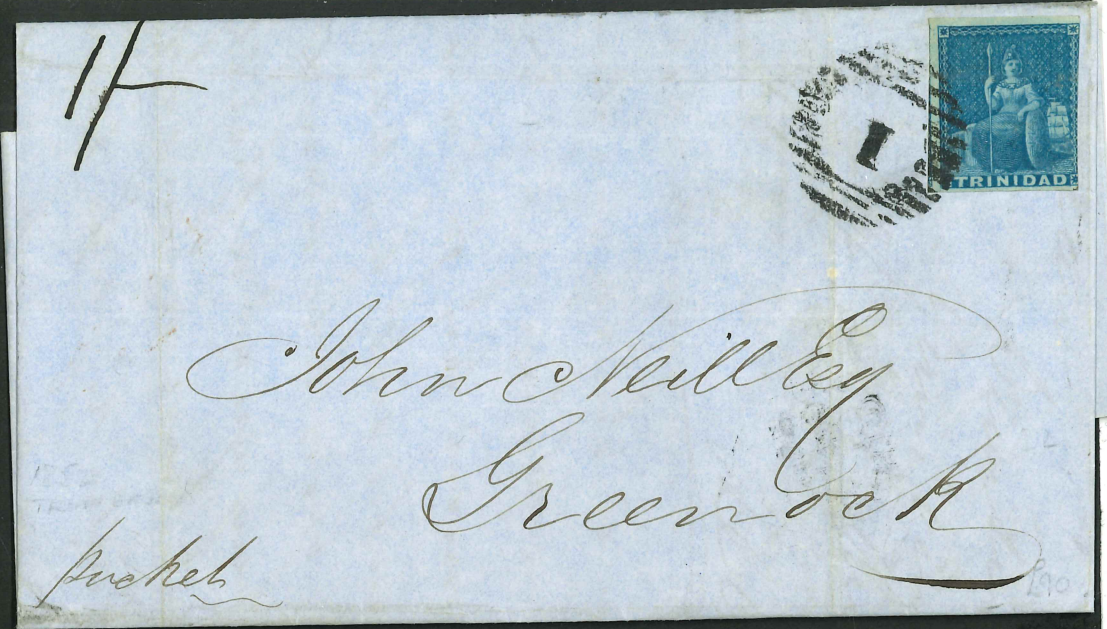 1/-
1
TRINIDAD
John Neill Esq
Greenock
packet
£90